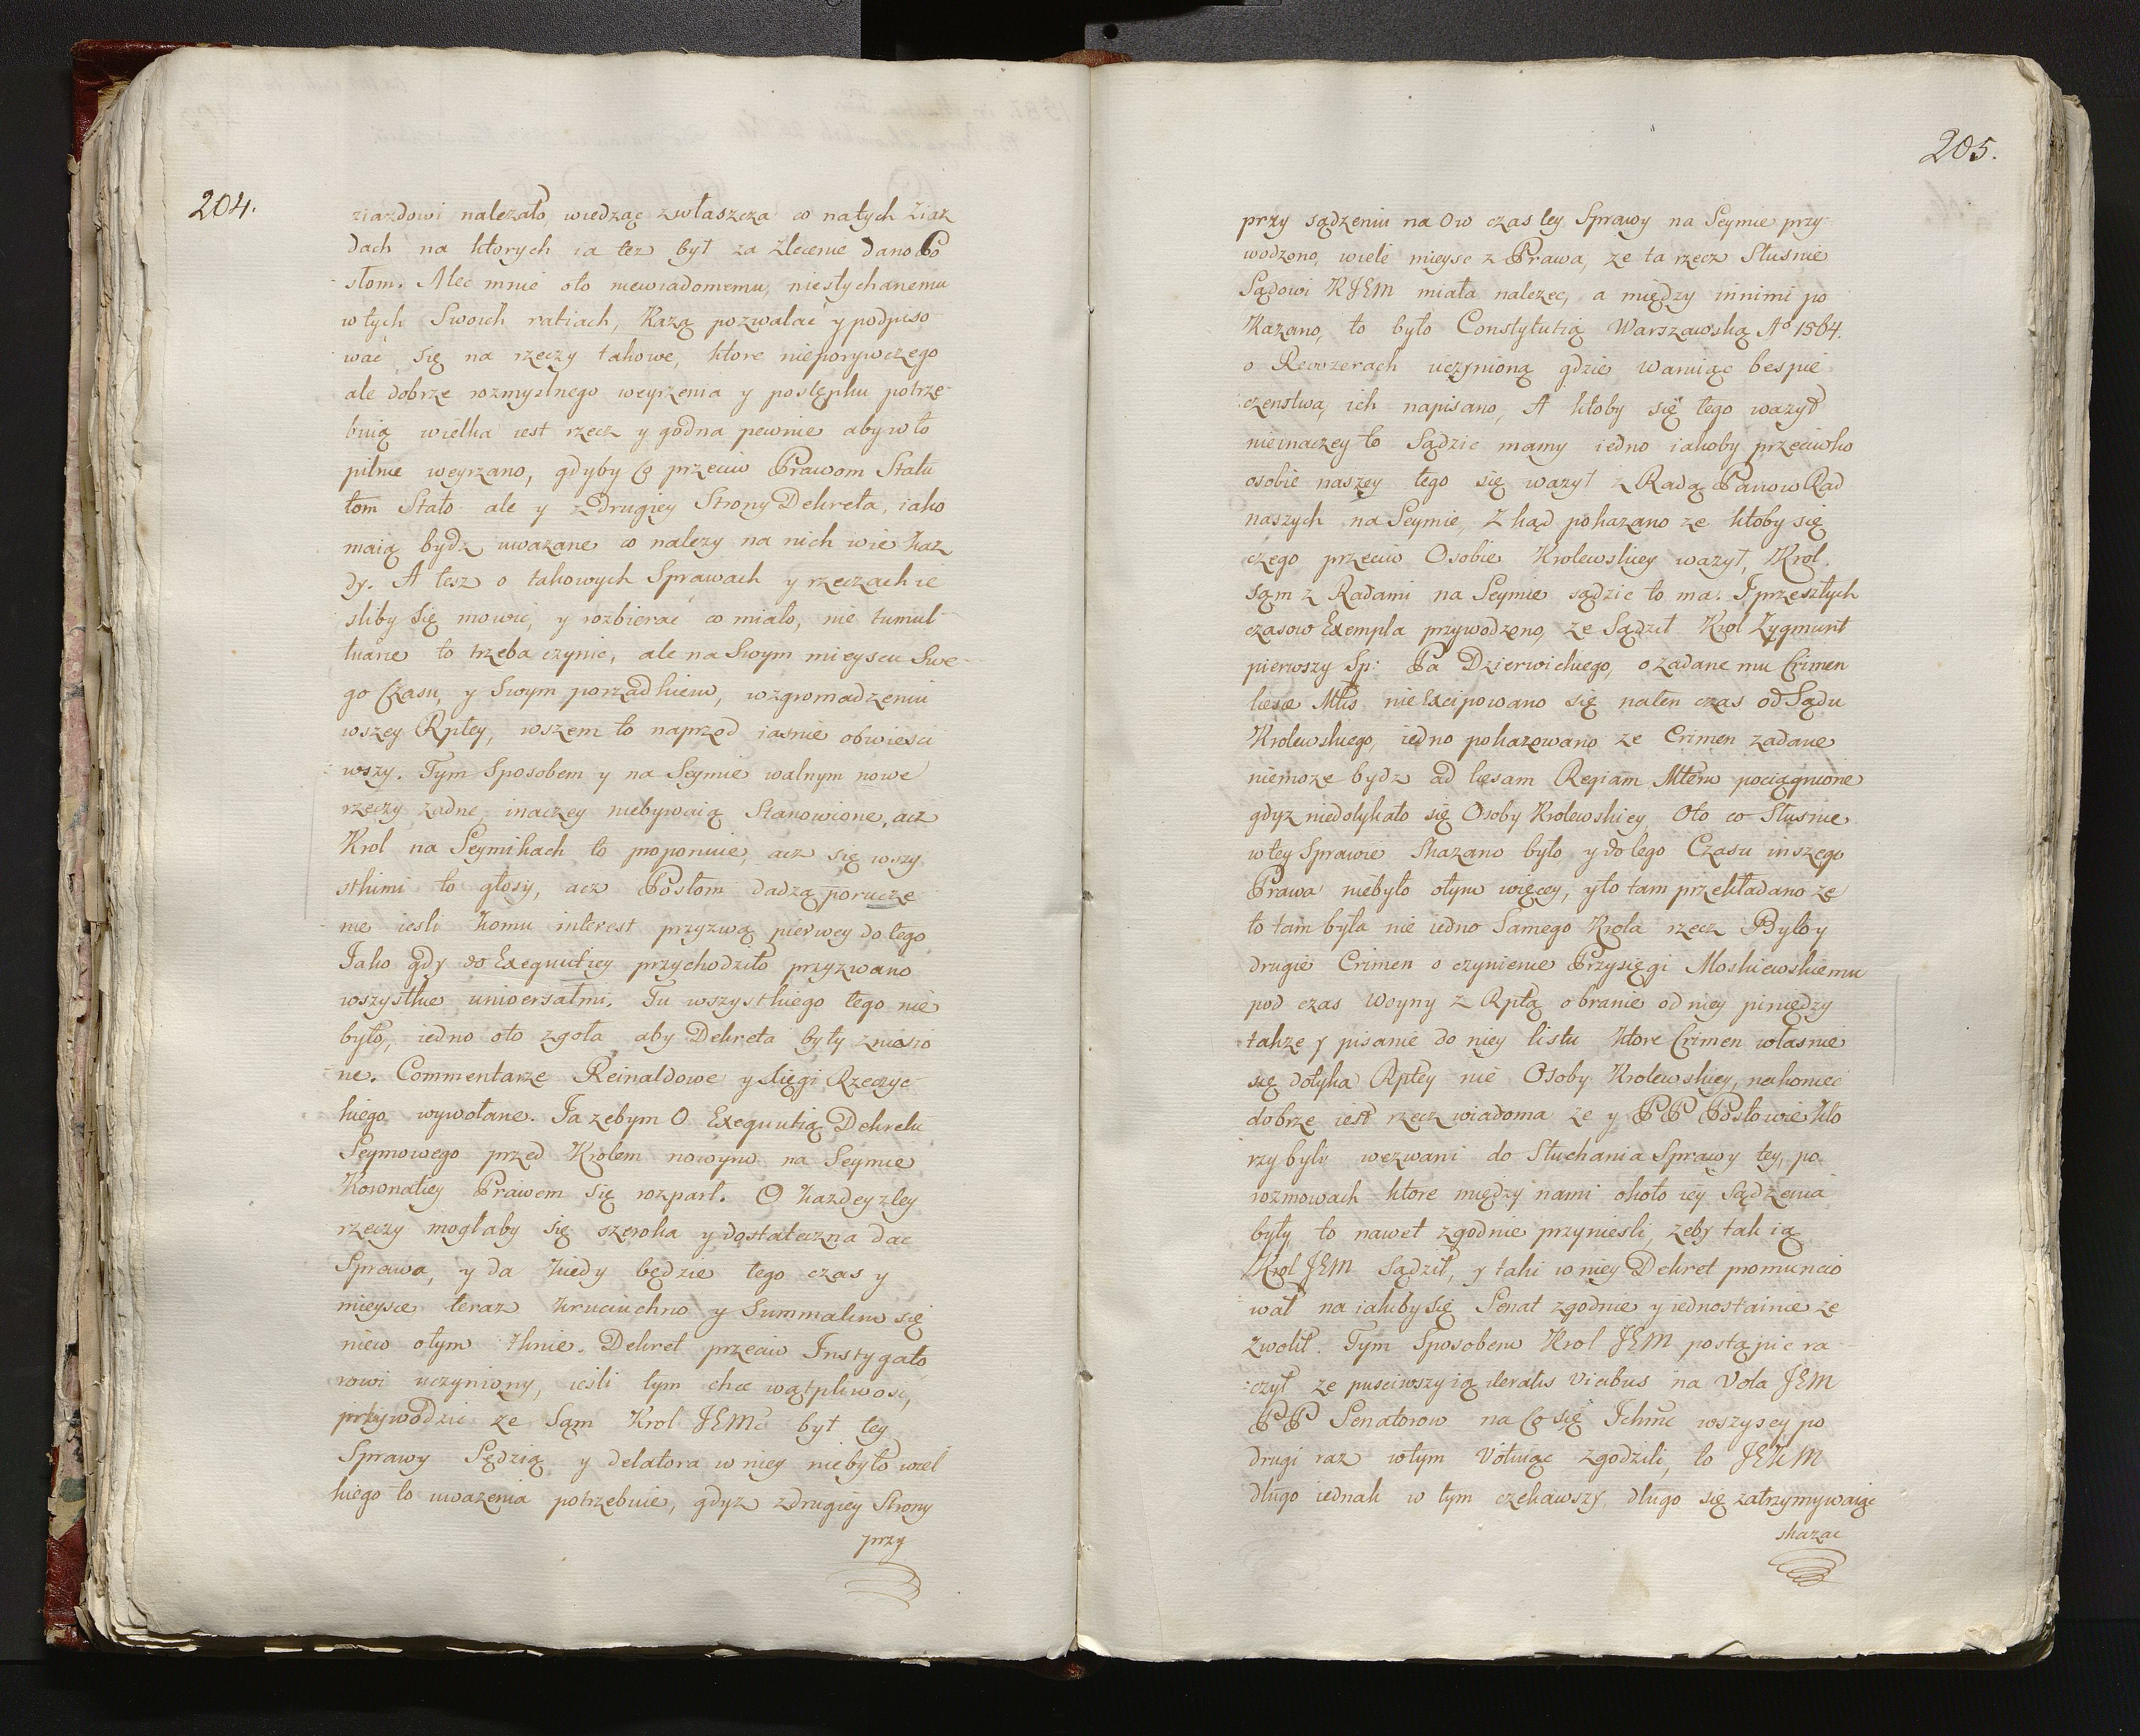 204.
ziazdowi nalezało, wiedząc zwłaszcza co natych Ziaz
dach na ktorych ia tez był za Zlecenie dano Po
słom. Alec mnie oto niewiadomemu, niesłychanemu
w tych Swoich ratiach, Każą pozwalać y podpiso
wać się na rzeczy takowe, ktore nieporywczego
ale dobrze rozmyslnego weyrzenia y postępku potrze
buią wielka iest rzecz y godna pewnie aby w to
pilnie weyrzano, gdyby Co przeciw Prawom Statu
tom Stało ale y z drugiey Strony Dekreta, iako
maią bydz uwazane co nalezy na nich wie Kaz
dy. A tesz o takowych Sprawach y rzeczach ie
sliby się mowić, y rozbierać co miało, nie tumul
tuarie to trzeba czynic, ale na Swym mieyscu Swe
go Czasu, y Swym porządkiem, w zgromadzeniu
wszey Rptey, wszem to naprzod iasnie obwiesci
wszy. Tym Sposobem y na Seymie walnym nowe
rzeczy zadne inaczey niebywaią Stanowione, acz
Krol na Seymikach to proponuie, acz się wszy
stkimi to głosy, acz Posłom dadzą porucze
nie iesli Komu interest przyzwą pierwey do tego
Jako gdy do Exequutiey przychodziło przyzwano
wszystkie uniwersałmi. Tu wszystkiego tego nie
było, iedno oto zgoła aby Dekreta były zniesio
ne. Commentarze Reinaldowe y xięgi Rzeczyc
kiego wywołane. Ja zebym O Exequutią Dekretu
Seymowego przed Krolem nowym na Seymie
Koronatiey Prawem się rozparł. O Kazdey z tey
rzeczy mogłaby się szeroka y dostateczna dac
Sprawa, y da Kiedy będzie tego czas y
mieysce teraz Kruciuchno y Summatim się
niew otym tknie. Dekret przeciw Instygato
rowi uczyniony, iesli tym chce wątpliwosc,
przywodzic ze Sam Krol JEMć był tey
Sprawy Sędzią y delatora w niey niebyło wiel
kiego to uwazenia potrzebuie, gdyz z drugiey Strony
przy
205.
przy sądzeniu na Ow czas tey Sprawy na Seymie przy
wodzono, wiele mieysc z Prawa, ze ta rzecz Słusnie
Sądowi KJEM miała nalezec, a między innimi po
Kazano, to było Constytutią Warszawską Aº 1564.
o Rewzerach uczynioną gdzie waruiąc bespie
czenstwa, ich napisano, A ktoby się tego wazył
nieinaczey to Sądzic mamy iedno iakoby przeciwko
osobie naszey tego się wazył z Radą Panow Rad
naszych na Seymie, Z kąd pokazano ze ktoby się
czego przeciw Osobie Krolewskiey wazył, Krol
sąm z Radami na Seymie sądzic to ma. I przeszłych
czasow Exempla przywodzono, ze Sądził Krol Zygmunt
pierwszy Sp: Pa Dzierwickiego, o zadane mu Crimen
lesæ Mtis nie Excipowano się naten czas od Sądu
Krolewskiego, iedno pokazowano ze Crimen zadane
niemoze bydz ad læsam Regiam Mtem pociągnione
gdyz niedotykało się Osoby Krolewskiey Oto co Słusnie
w tey Sprawie Skazano było, y do tego Czasu inszego
Prawa niebyło otym więcey, y to tam przekładano ze
to tam była nie iedno Samego Krola rzecz Było y
drugie Crimen o czynienie Przysięgi Moskiewskiemu
pod czas Woyny z Rptą o branie od niey pieniędzy
takze y pisanie do niey listu Ktore Crimen własnie
się dotyka Rptey nie Osoby Krolewskiey, nakoniec
dobrze iest rzecz wiadoma ze y PP Posłowie Kto
rzy byli wezwani do Słuchania Sprawy tey, po
rozmowach ktore między nami około iey Sądzenia
były, to nawet zgodnie przyniesli, zeby tak ią
Krol JEM Sądził, y taki w niey Dekret pronuncio
wał na iakiby się Senat zgodnie y iednostainie ze
zwolił. Tym Sposobem Krol JEM postąpic ra
czył ze pusciwszy ią iteratis Vicibus na Vota JEM
PP Senatorow na Co się Ichmc wszyscy po
drugi raz wtym Votuiąc zgodzili, to JEKM
długo iednak w tym czekawszy, długo się zatrzymywaiąc
skazac